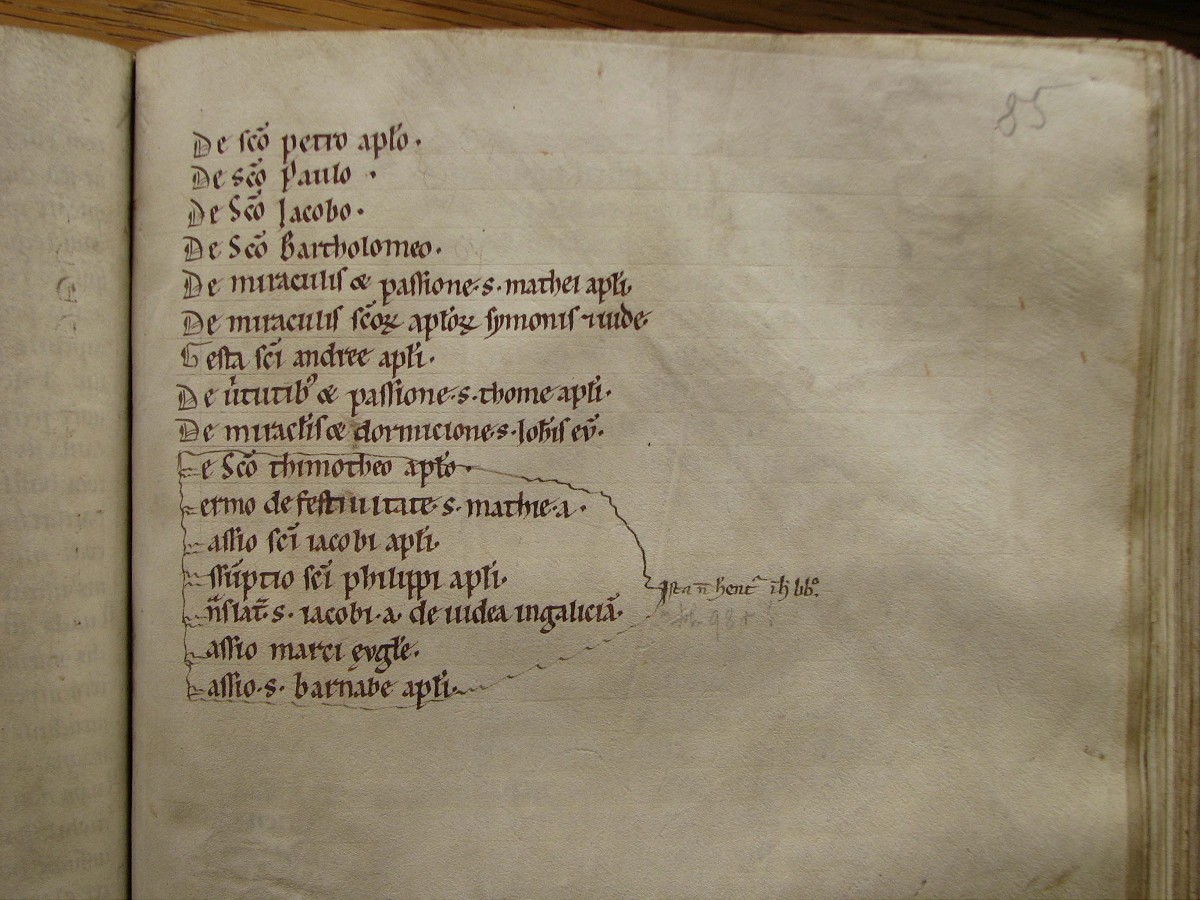 85
De sc̄o petro apl̄o.
De sc̄o Paulo.
De Sc̄o Iacobo.
De Sc̄o Bartholomeo.
De miraculis & passione .s. mathei apl̄i.
De miraculis sc̄oꝝ apl̄oꝝ symonis ⁊ iude.
Gesta sc̄i andree apl̄i.
De v̄tutibꝰ & passione .s. thome apl̄i.
De miracl̄is & dormicione .s. Ioh̄is ev̄.
e Sc̄o thimotheo apl̄o.
ermo de festiuitate .s. mathie .a.
assio sc̄i iacobi apl̄i.
ssūptio sc̄i philippi apl̄i.
n̄slat̄ .s. iacobi .a. de iudea in galiciā.
assio marci evgl̄e.
assio .s. barnabe apl̄i.
Ista n̄ hent᷑ ī h̄
98